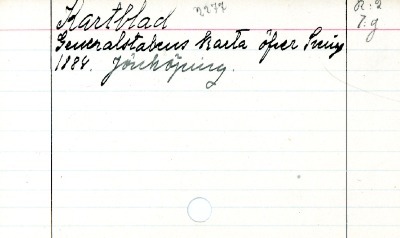 Kartblad n277 R:2
Generalstabens karta öfver Sverige 7:g
1884. Jönköping.